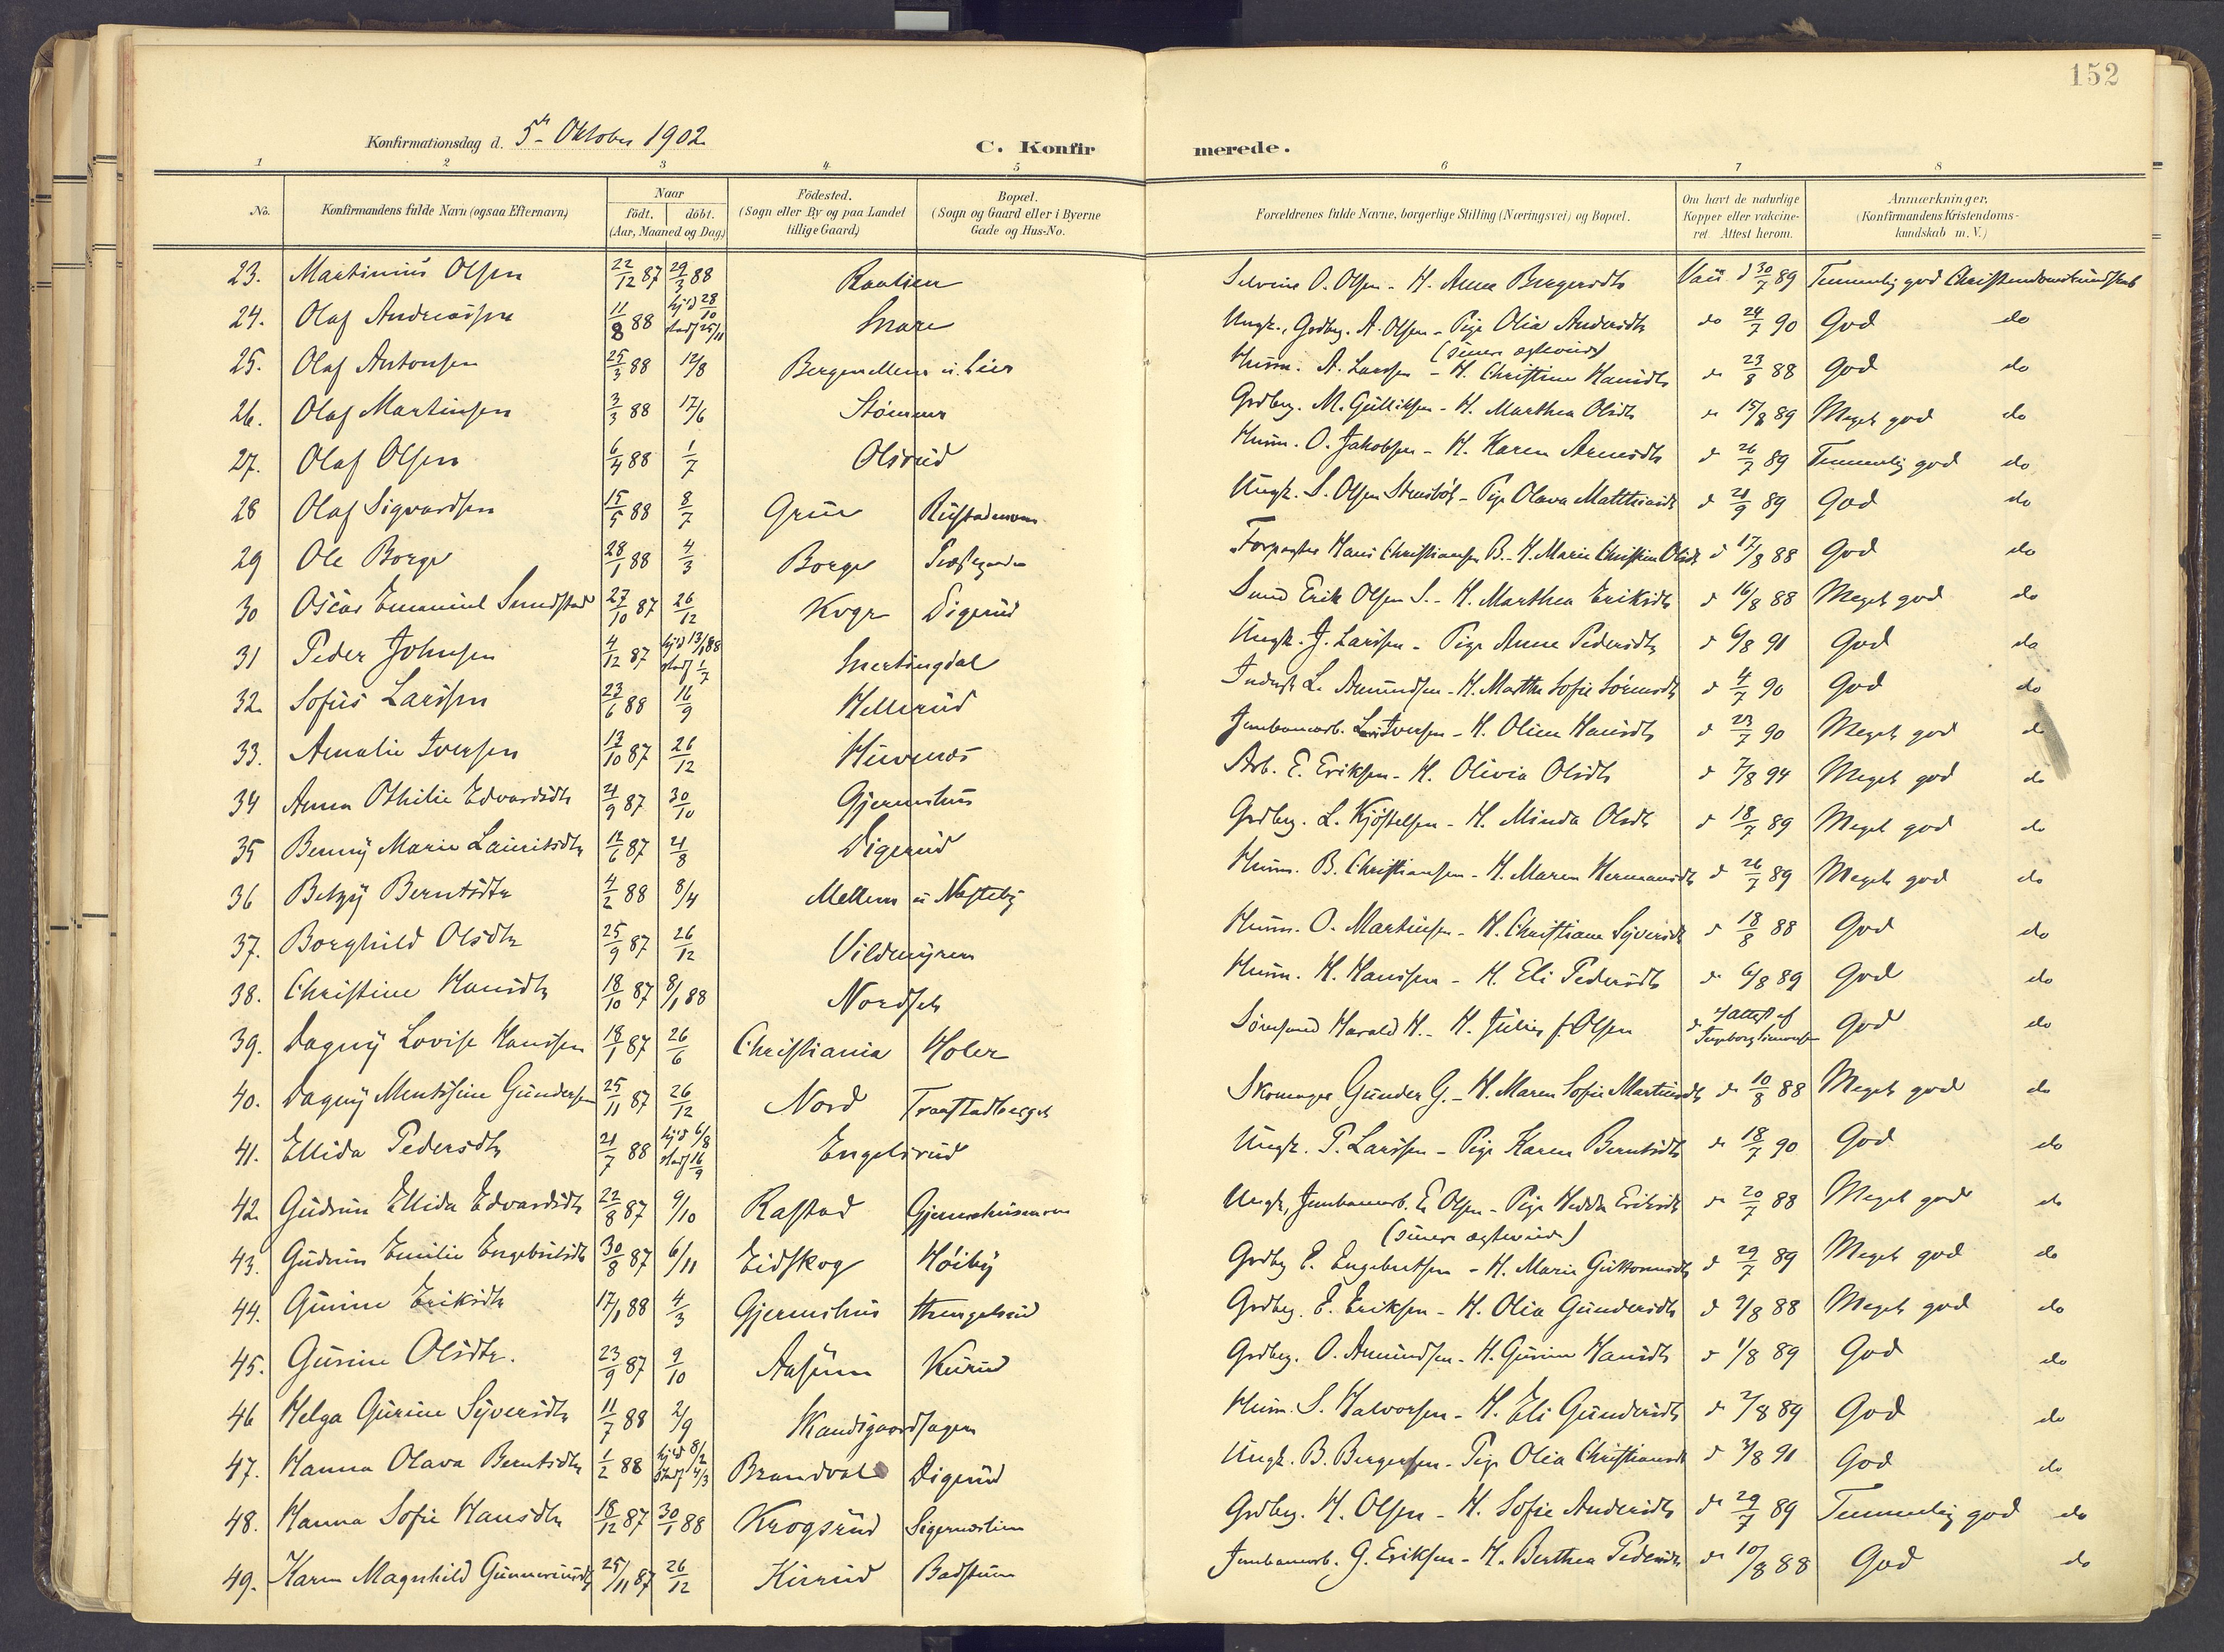 152
Konfirmationsdag d. 5te Oktober 1902
C. Konfirmerede.
1 2 3 4 5 6 7 8
No. Konfirmandens fulde Navn (ogsaa Efternavn) Naar födt. döbt. (Aar, Maaned og Dag) Födested. (Sogn eller By og paa Landet tillige Gaard) Bopæl. (Sogn og Gaard eller i Byerne Gade og Hus-No. Forældrenes fulde Navne, borgerlige Stilling (Næringsvei) og Bopæl. Om havt de naturlige Kopper eller vakcineret Attest herom. Anmærkninger. (Konfirmandens Kristendomskundskab m. V.)
23. Martinius Olsen 22/12 87 29/3 88 O. Olsen - H. Anne Bergersdtr Vacc. d 30/7 89 Temmelig god Christendomskundskab
24. Olaf Andreassen 11/8 88 hjd 28/10 stadf 25/11 Snare Ungk., Grdbrg. A. Olsen - Pige Olia Andersdtr do 24/7 90 God do
25. Olaf Antonsen 25/3 88 12/8 Bergersmellem u. Lier Husm. A. Larssen - H. Christine Hansdtr (senere ægteviede) d 23/8 88 God do
26. Olaf Martinsen 3/3 88 17/6 Stömner Grdbrg. M. Gulliksen - H. Marthea Olsdtr d 15/8 89 Meget god do
27. Olaf Olsen 6/4 88 1/7 Olsrud Husm. O. Jakobsen - H. Karen Arnesdtr d 26/7 89 Temmelig god do
28 Olaf Sigvardsen 15/5 88 8/7 Grue Rustadmoen Ungk. S. Olsen - Pige Olava Matthiasdtr d 21/9 89 God do
29 Ole Borge 28/1 88 4/3 Borge Præstegarden Forpagter Hans Christiansen B. - H. Marie Christine Olsdtr d 17/8 88 God do
30 Oscar Emanuel Sundstad 27/10 87 26/12 Kroger Digerud Smed Erik Olsen S. - H. Marthea Eriksdtr d 16/8 88 Meget god do
31 Peder Johnsen 4/12 87 hjd 13/1 88 stadf 1/7 Smertingdal Ungk. J. Larssen - Pige Anne Pedersdtr d 6/8 91 God do
32. Sofus Larssen 23/6 88 16/9 Hellerud Inderst L. Amundsen - H. Marthe Sofie Sörensdtr d 4/7 90 God do
33. Amalie Iversen 13/10 87 26/12 Jernbanearb. Lars Iversen - H. Oline Hansdtr d 23/7 90 Meget god do
34 Anna Othilie Edvardsdtr 21/9 87 30/10 Gjermshus Arb. E. Eriksen - H. Olivia Olsdtr d 7/8 94 Meget god do
35 Benny Marie Lauritsdtr 12/6 87 21/8 Digerud Grdbrg. L. Kjöstelsen - H. Minda Olsdtr d 18/7 89 Meget god do
36 Betzy Berntsdtr 4/2 88 8/4 Mellem u Nesteby Husm. B. Christiansen - H. Maren Hermansdtr d 26/7 89 Meget god do
37. Borghild Olsdtr 25/9 87 26/12 Vildmyren Husm. O. Martinsen - H. Christiane Syversdtr d 18/8 88 God do
38. Christine Hansdtr 18/10 87 8/1 88 Nordset Husm. H. Hanssen - H. Eli Pedersdtr d 6/8 89 God do
39. Dagny Lovise Hanssen 18/1 87 26/6 Christiania Holer Harald H. - H. Julie f. Olsen d attest af Ingeborg Simonsen God do
40. Dagny Mentsine Gundersen 25/11 87 26/12 Nord Traastadberget Skomager Gunder G. - H. Maren Sofie Martinsdtr d 10/8 88 Meget god do
41. Ellida Pedersdtr 21/7 88 hjd 6/8 stadf 16/9 Engelsrud Ungk. P. Larssen - Pige Karen Berntsdtr d 18/7 90 God do
42. Gudrun Ellida Edvardsdtr 22/8 87 9/10 Rastad Gjermshusmoen Ungk, Jernbanearb. E. Olsen - Pige Hedda Eriksdtr (senere ægteviede) d 20/7 88 Meget god do
43. Gudrun Emilie Engebretsdtr 30/8 87 6/11 Eidskog Höiby Grdbrg E. Engebretsen - H. Marie Guttormsdtr d 29/7 89 Meget god do
44. Gunine Eriksdtr 17/1 88 4/3 Gjermshus Grdbrg. E. Eriksen - H. Olia Gundersdtr d 9/8 88 Meget god do
45. Gurine Olsdtr. 23/9 87 9/10 Aasum Kurud Grdbrg. O. Amundsen - H. Gurine Hansdtr d 1/8 89 God do
46 Helga Gurine Syversdtr 11/7 88 2/9 Skandsgaardsagen Husm. S. Halvorsen - H. Eli Gundersdtr d 2/8 89 God do
47. Hanna Olava Berntsdtr 1/2 88 hjd 8/2 stadf 4/3 Brandval Digerud Ungk. B. Bergersen - Pige Olia Christiansdtr d 3/8 91 God do
48. Hanna Sofie Hansdtr 18/12 87 30/1 88 Krogsrud Sigernæslien Grdbrg. H. Olsen - H. Sofie Andersdtr d 29/7 89 Temmelig god do
49. Karen Magnhild Gunneriusdtr 25/11 87 26/12 Kirrud Badstuen Jernbanearb. G. Eriksen - H. Berthea Pedersdtr d 10/8 88 God do